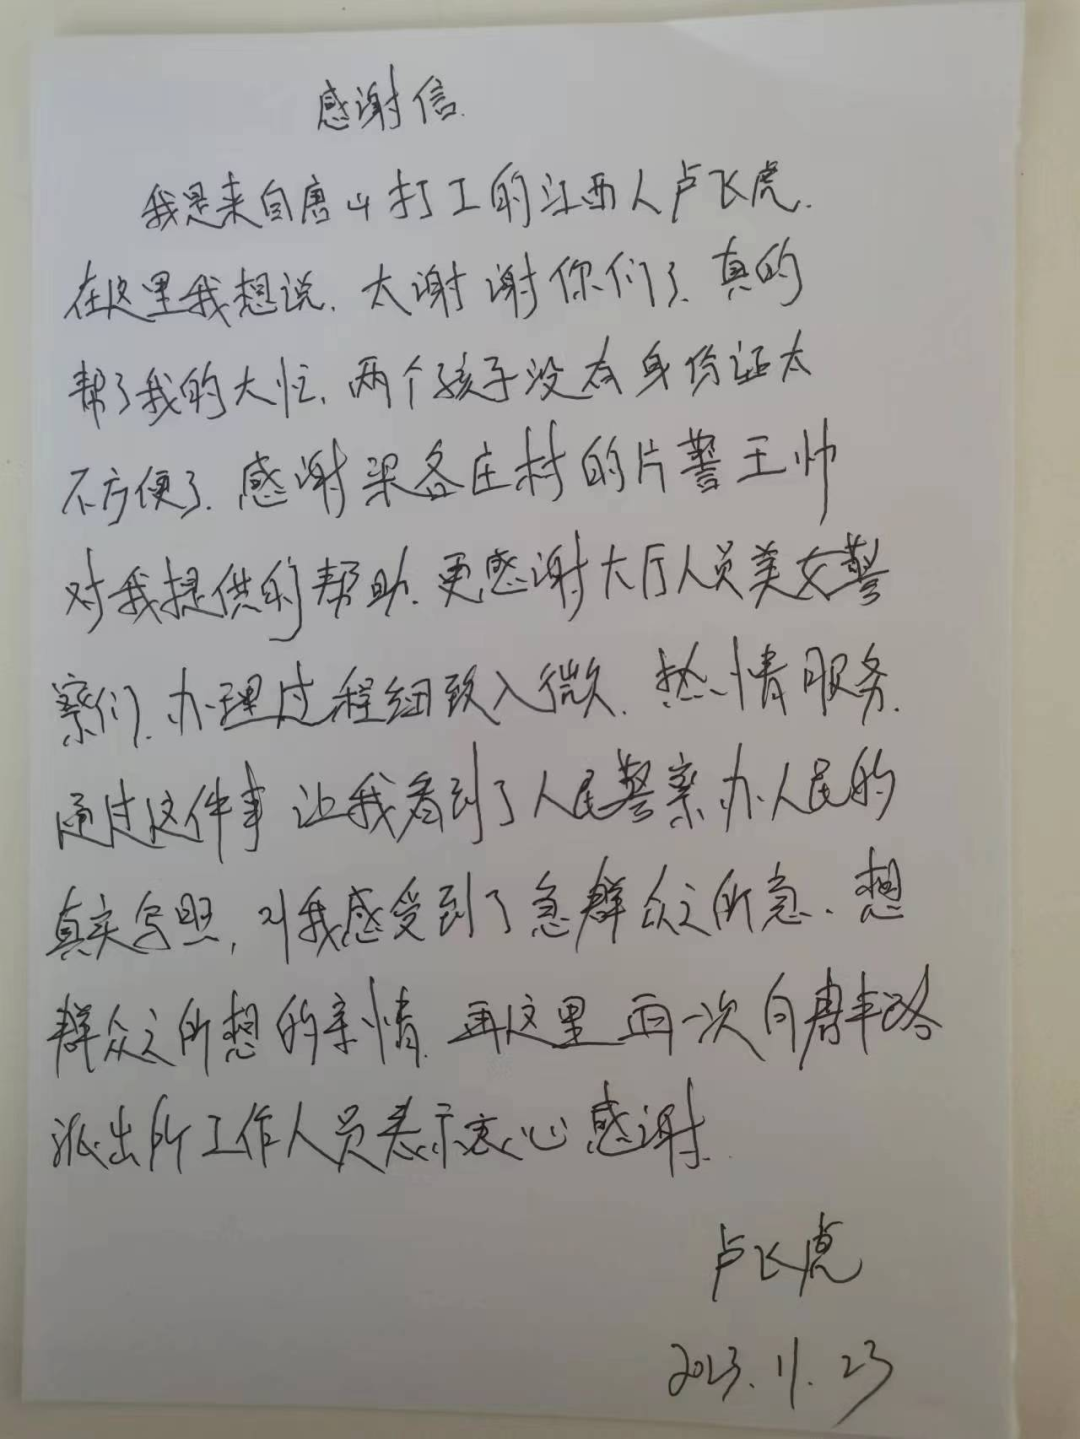 感谢信.
我是来自唐山打工的江西人卢飞虎.
在这里我想说.太谢谢你们了.真的
帮了我的大忙,两个孩子没有身份证太
不方便了.感谢梁各庄村的片警王帅
对我提供的帮助.更感谢大厅人员美女警
察们.办理过程细致入微.热情服务.
通过这件事 让我看到了人民警察办人民的
真实写照,叫我感受到了急群众之所急.想
群众之所想的亲情.再这里 再一次向唐丰路
派出所工作人员表示衷心感谢.
卢飞虎
2023.11.23